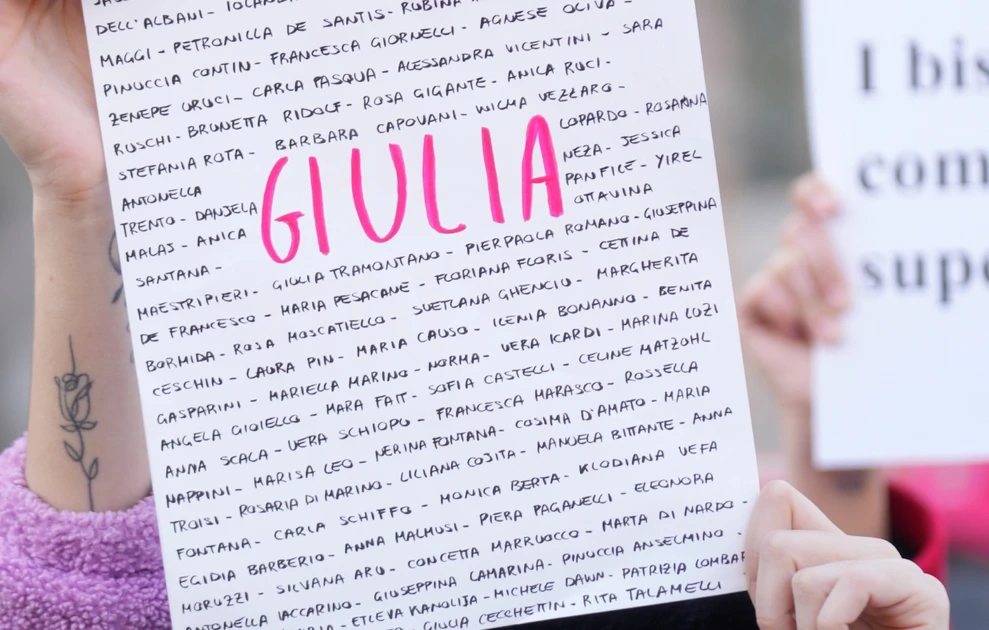 DELL'ALBANI - IOLAND
MAGGI - PETRONILLA DE SANTIS - RUBINA
PINUCCIA CONTIN - FRANCESCA GIORNELLI - AGNESE OLIVA -
ZENEPE URUCI - CARLA PASQUA - ALESSANDRA VICENTINI - SARA
RUSCHI - BRUNETTA RIDOLF - ROSA GIGANTE - ANILA RUCI -
STEFANIA ROTA - BARBARA CAPOVANI - WILMA VEZZARO -
ANTONELLA LOPARDO - ROSANNA
TRENTO - DANJELA NEZA - JESSICA
MALAJ - ANICA PANFILE - YIREL
SANTANA - OTTAVINA
GIULIA
MAESTRIPIERI - GIULIA TRAMONTANO - PIERPAOLA ROMANO - GIUSEPPINA
DE FRANCESCO - MARIA PESACANE - FLORIANA FLORIS - CETTINA DE
BORMIDA - ROSA MOSCATIELLO - SVETLANA GHENCIU - MARGHERITA
CESCHIN - LAURA PIN - MARIA CAUSO - ILENIA BONANNO - BENITA
GASPARINI - MARIELLA MARINO - NORMA - VERA ICARDI - MARINA LUZI
ANGELA GIOIELLO - MARA FAIT - SOFIA CASTELLI - CELINE MATZOHL
ANNA SCALA - VERA SCHIOPU - FRANCESCA MARASCO - ROSSELLA
NAPPINI - MARISA LEO - NERINA FONTANA - COSIMA D'AMATO - MARIA
TROISI - ROSARIA DI MARINO - LILIANA COJITA - MANUELA BITTANTE - ANNA
FONTANA - CARLA SCHIFFO - MONICA BERTA - KLODIANA VEFA
EGIDIA BARBERIO - ANNA MALMUSI - PIERA PAGANELLI - ELEONORA
MORUZZI - SILVANA ARU - CONCETTA MARRUOCCO - MARTA DI NARDO -
ANTONELLA IACCARINO - GIUSEPPINA LAMARINA - PINUCCIA ANSELMINO -
ETLEVA KANOLIJA - MICHELE DAWN - PATRIZIA LOMBAR
GIULIA CECCHETTIN - RITA TALAMELLI
I bis
com
supe